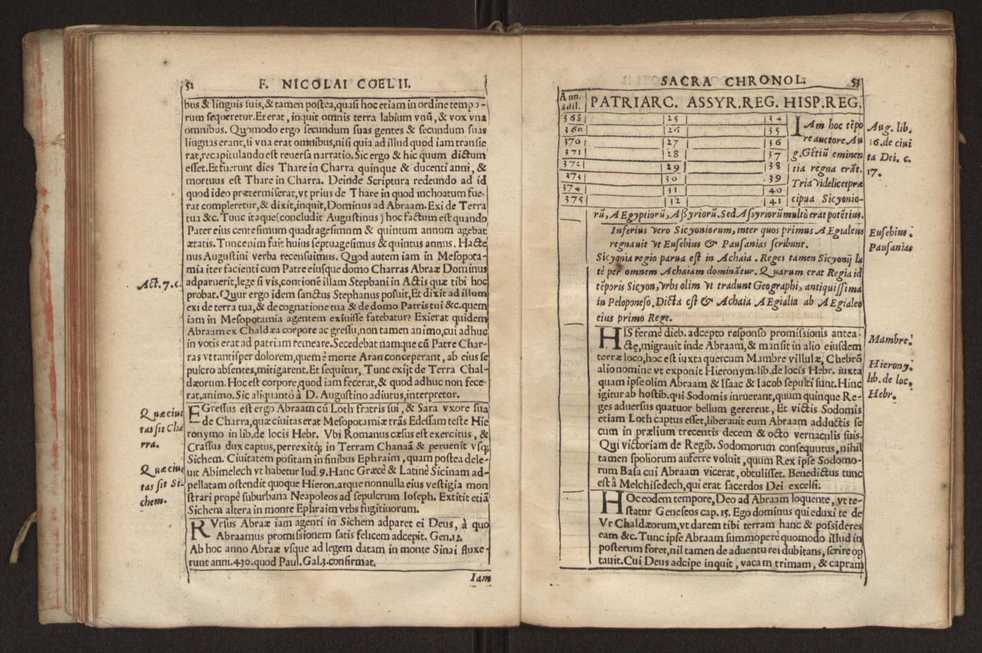 52 F. NICOLAI COELII.
bus & linguis suis, & tamen postea, quasi hoc etiam in ordine tempo-
rum sequeretur. Et erat, inquit omnis terra labium vnũ, & vox vna
omnibus. Quomodo ergo secundum suas gentes & secundum suas
linguas erant, si vna erat omnibus, nisi quia ad illud quod iam transie
rat, recapitulando est reuersa narratio. Sic ergo & hic quum dictum
esset. Et fuerunt dies Thare in Charra quinque & ducenti anni, &
mortuus est Thare in Charra. Deinde Scriptura redeundo ad id
quod ideo prætermiserat, vt prius de Thare in quod inchoatum fue-
rat compleretur, & dixit, inquit, Dominus ad Abraam. Exi de Terra
tua &c. Tunc itaque (concludit Augustinus) hoc factum est quando
Pater eius centesimum quadragesimum & quintum annum agebat
ætatis. Tunc enim fuit huius septuagesimus & quintus annus. Hacte
nus Augustini verba recensuimus. Quod autem iam in Mesopota-
mia iter facienti cum Patre eiusque domo Charras Abraæ Dominus
adparuerit, lege si vis, contionẽ illam Stephani in Actis quæ tibi hoc
probat. Quur ergo idem sanctus Stephanus posuit, Et dixit ad illum
exi de terra tua, & de cognatione tua & de domo Patris tui &c. quem
iam in Mesopotamia agentem exiuisse fatebatur? Exierat quidem
Abraam ex Chaldæa corpore ac gressu, non tamen animo, cui adhuc
in votis erat ad patriam remeare. Secedebat namque cũ Patre Char-
ras vt tantisper dolorem, quem è morte Aran conceperant, ab eius se
pulcro absentes, mitigarent. Et sequitur, Tunc exijt de Terra Chal-
dæorum. Hoc est corpore, quod iam fecerat, & quod adhuc non fece-
rat, animo. Sic aliquantò à D. Augustino adiutus, interpretor.
Act. 7. c.
EGressus est ergo Abraam cũ Loth fratris sui, & Sara vxore sua
de Charra, quæ ciuitas erat Mesopotamiæ trãs Edessam teste Hie
ronymo in lib. de locis Hebr. Vbi Romanus cæsus est exercitus, &
Crassus dux captus, perrexitq; in Terram Chanaã & peruenit vsq;
Sichem. Ciuitatem positam in finibus Ephraim, quam postea dele-
uit Abimelech vt habetur Iud. 9. Hanc Græcè & Latinè Sicinam ad-
pellatam ostendit quoque Hieron. atque nonnulla eius vestigia mon
strari propè suburbana Neapoleos ad sepulcrum Ioseph. Extitit etiã
Sichem altera in monte Ephraim vrbs fugitiuorum.
Quæ ciui
tas sit Cha
rra.
Quæ ciui
tas sit Si-
chem.
RVrsus Abraæ iam agenti in Sichem adparet ei Deus, à quo
Abraamus promissionem satis felicem adcepit. Gen. 12.
Ab hoc anno Abraæ vsque ad legem datam in monte Sinai fluxe-
runt anni. 430. quod Paul. Gal. 3. confirmat.
Iam
SACRA CHRONOL. 53
Ann. PATRIARC. ASSYR. REG. HISP. REG.
368 | 25 | 34
369 | 26 | 35
370 | 27 | 36
371 | 28 | 37
372 | 29 | 38
373 | 30 | 39
374 | 31 | 40
375 | 32 | 41
IAm hoc tẽpo
re auctore. Au
g. Gẽtiũ eminen
tia regna erãt.
Tria videlicet præ
cipua Sicyonio-
rũ, AEgyptiorũ, Assyriorũ. Sed Assyriorũ multò erat potẽtius.
Inferius vero Sicyoniorum, inter quos primus AEgialeus
regnauit vt Eusebius & Pausanias scribunt.
Sicyonia regio parua est in Achaia. Reges tamen Sicyonij la
tè per omnem Achaiam dominãtur. Quarum erat Regia id
tẽporis Sicyon, vrbs olim vt tradunt Geographi, antiquissima
in Peloponeso. Dicta est & Achaia AEgialia ab AEgialeo
eius primo Rege.
Aug. lib.
16. de ciui
ta Dei. c.
17.
Eusebius.
Pausanias
HIS fermè dieb. adcepto responso promissionis antea-
ctę, migrauit inde Abraam, & mansit in alio eiusdem
terræ loco, hoc est iuxta quercum Mambre villulæ, Chebrõ
alio nomine vt exponit Hieronym. lib. de locis Hebr. iuxta
quam ipse olim Abraam & Isaac & Iacob sepulti sunt. Hinc
igitur ab hostib. qui Sodomis inruerant, quum quinque Re-
ges aduersus quatuor bellum gererent, Et victis Sodomis
etiam Loth captus esset, liberauit eum Abraam adductis se
cum in prælium trecentis decem & octo vernaculis suis.
Qui victoriam de Regib. Sodomorum consequutus, nihil
tamen spoliorum auferre voluit, quum Rex ipse Sodomo-
rum Basa cui Abraam vicerat, obtulisset. Benedictus tunc
est à Melchisedech, qui erat sacerdos Dei excelsi.
Mambre.
Hierony.
lib. de loc.
Hebr.
HOc eodem tempore, Deo ad Abraam loquente, vt te-
statur Geneseos cap. 15. Ego dominus qui eduxi te de
Vr Chaldæorum, vt darem tibi terram hanc & possideres
eam &c. Tunc ipse Abraam summopere quomodo illud in
posterum foret, nil tamen de aduentu rei dubitans, scire op
tauit. Cui Deus adcipe inquit, vacam trimam, & capram